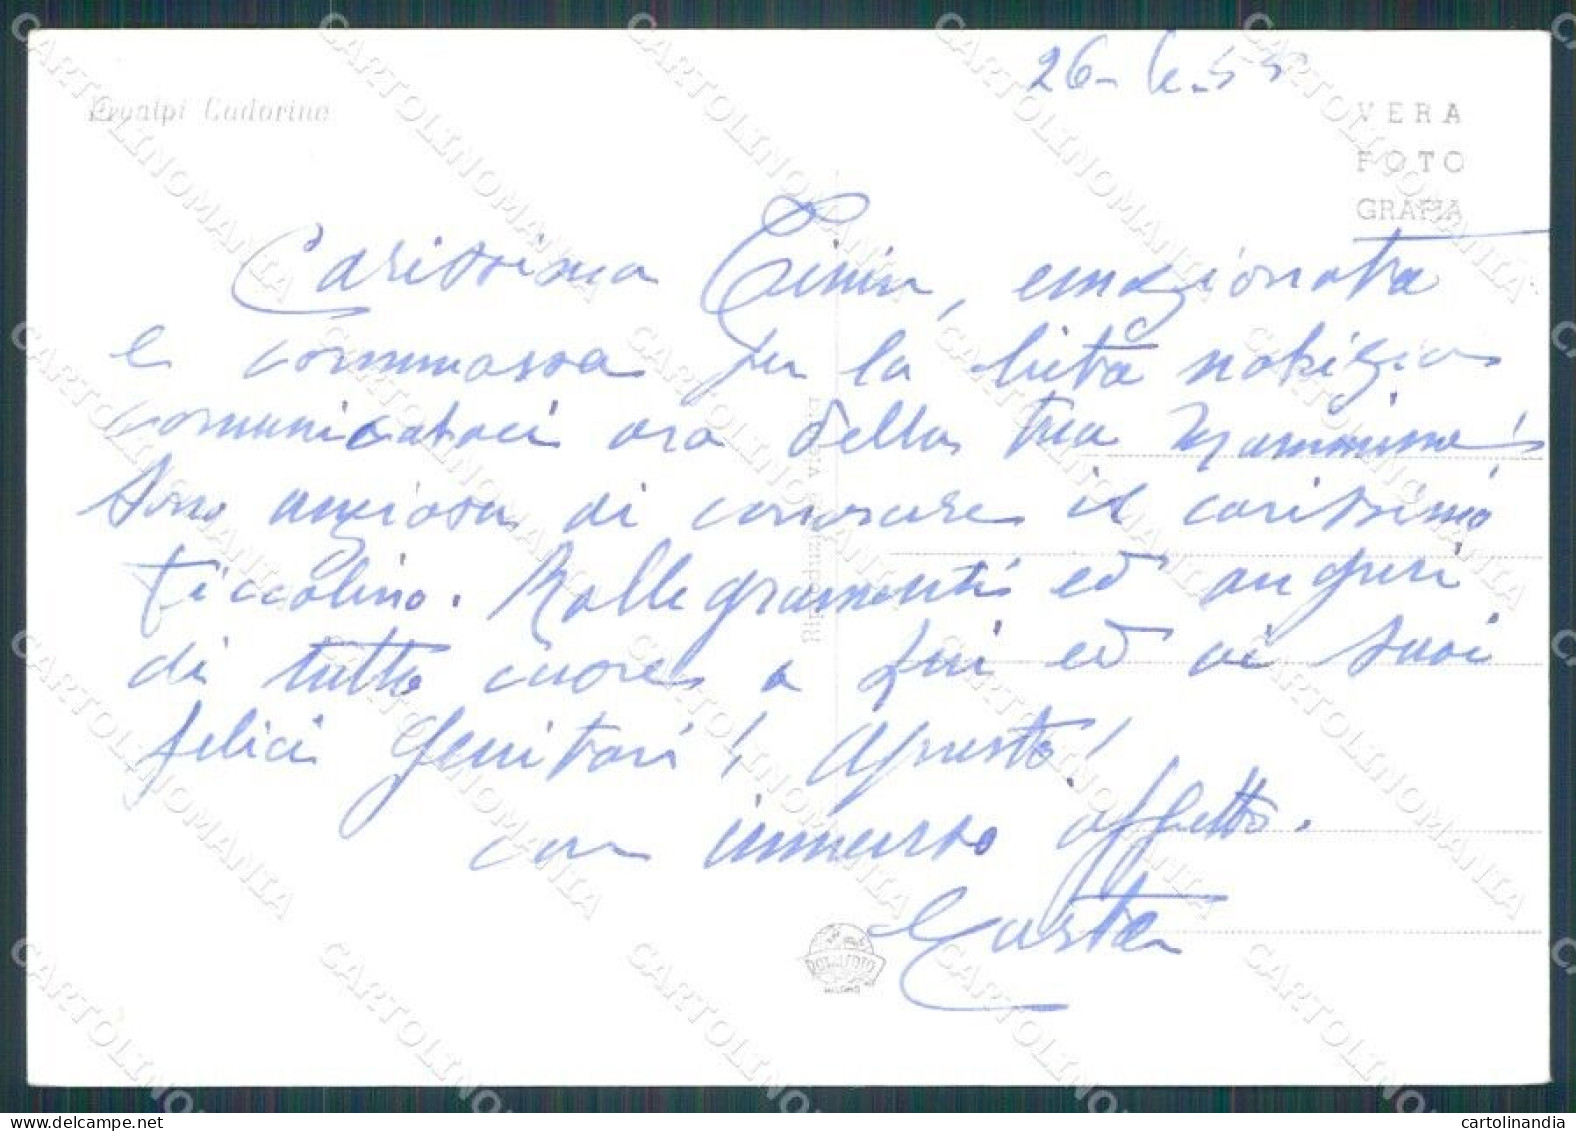 26-
VERA
FOTO
GRAFIA
Prealpi Cadorine
Carissima emozionata
e commossa per la lieta notizia
comunicataci ora della tua mammina!
Sono ansiosa di conoscere il carissimo
Piccolino. Rallegramenti ed auguri
di tutto cuore a Lui ed ai suoi
felici genitori! A presto!
con immenso affetto.
ROTALFOTO
MILANO
CARTOLINOMANIA
cartolinandia